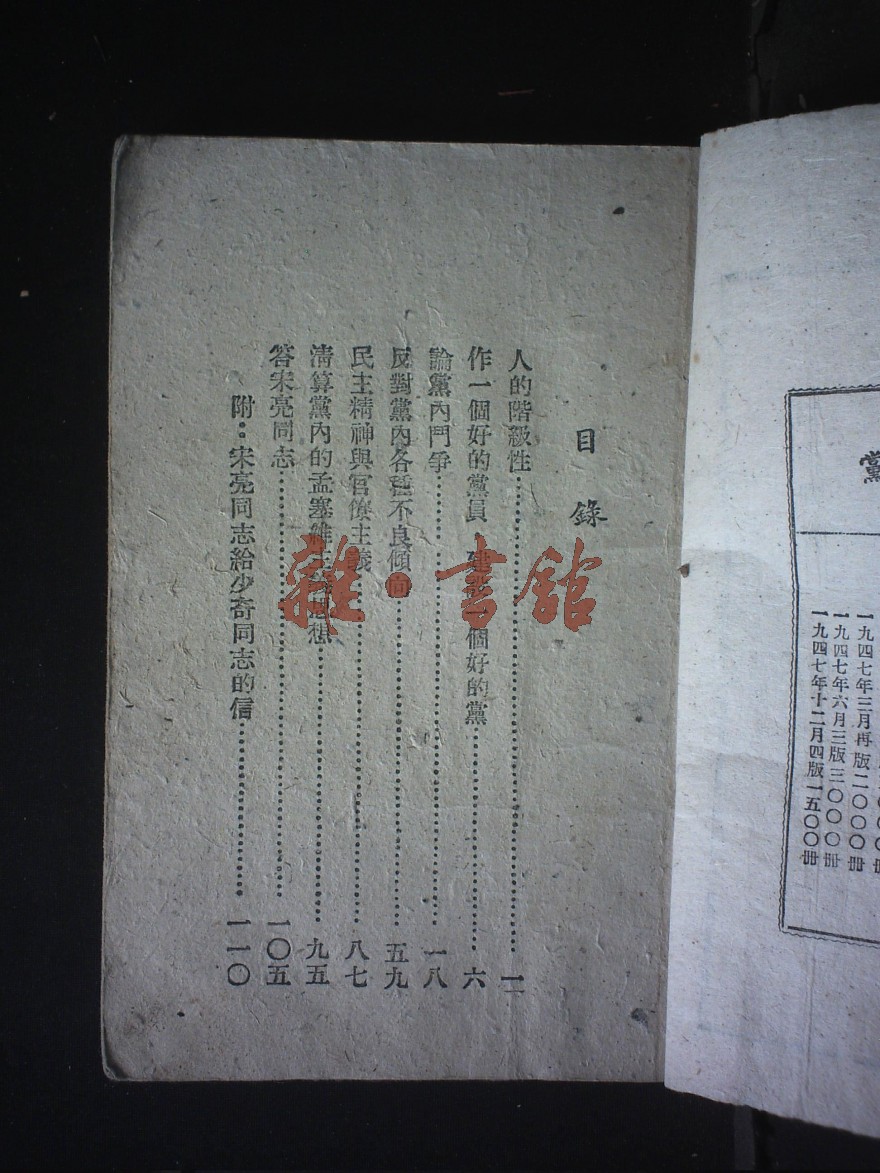 黨
一九四七年三月再版二〇〇〇冊
一九四七年六月三版三〇〇〇冊
一九四七年十二月四版一五〇〇冊
目錄
人的階級性 一
作一個好的黨員 建設一個好的黨 六
論黨內鬥爭 一八
反對黨內各種不良傾向 五九
民主精神與官僚主義 八七
清算黨內的孟塞維主義思想 九五
答宋亮同志 一〇五
附：宋亮同志給少奇同志的信 一一〇
雜·書館